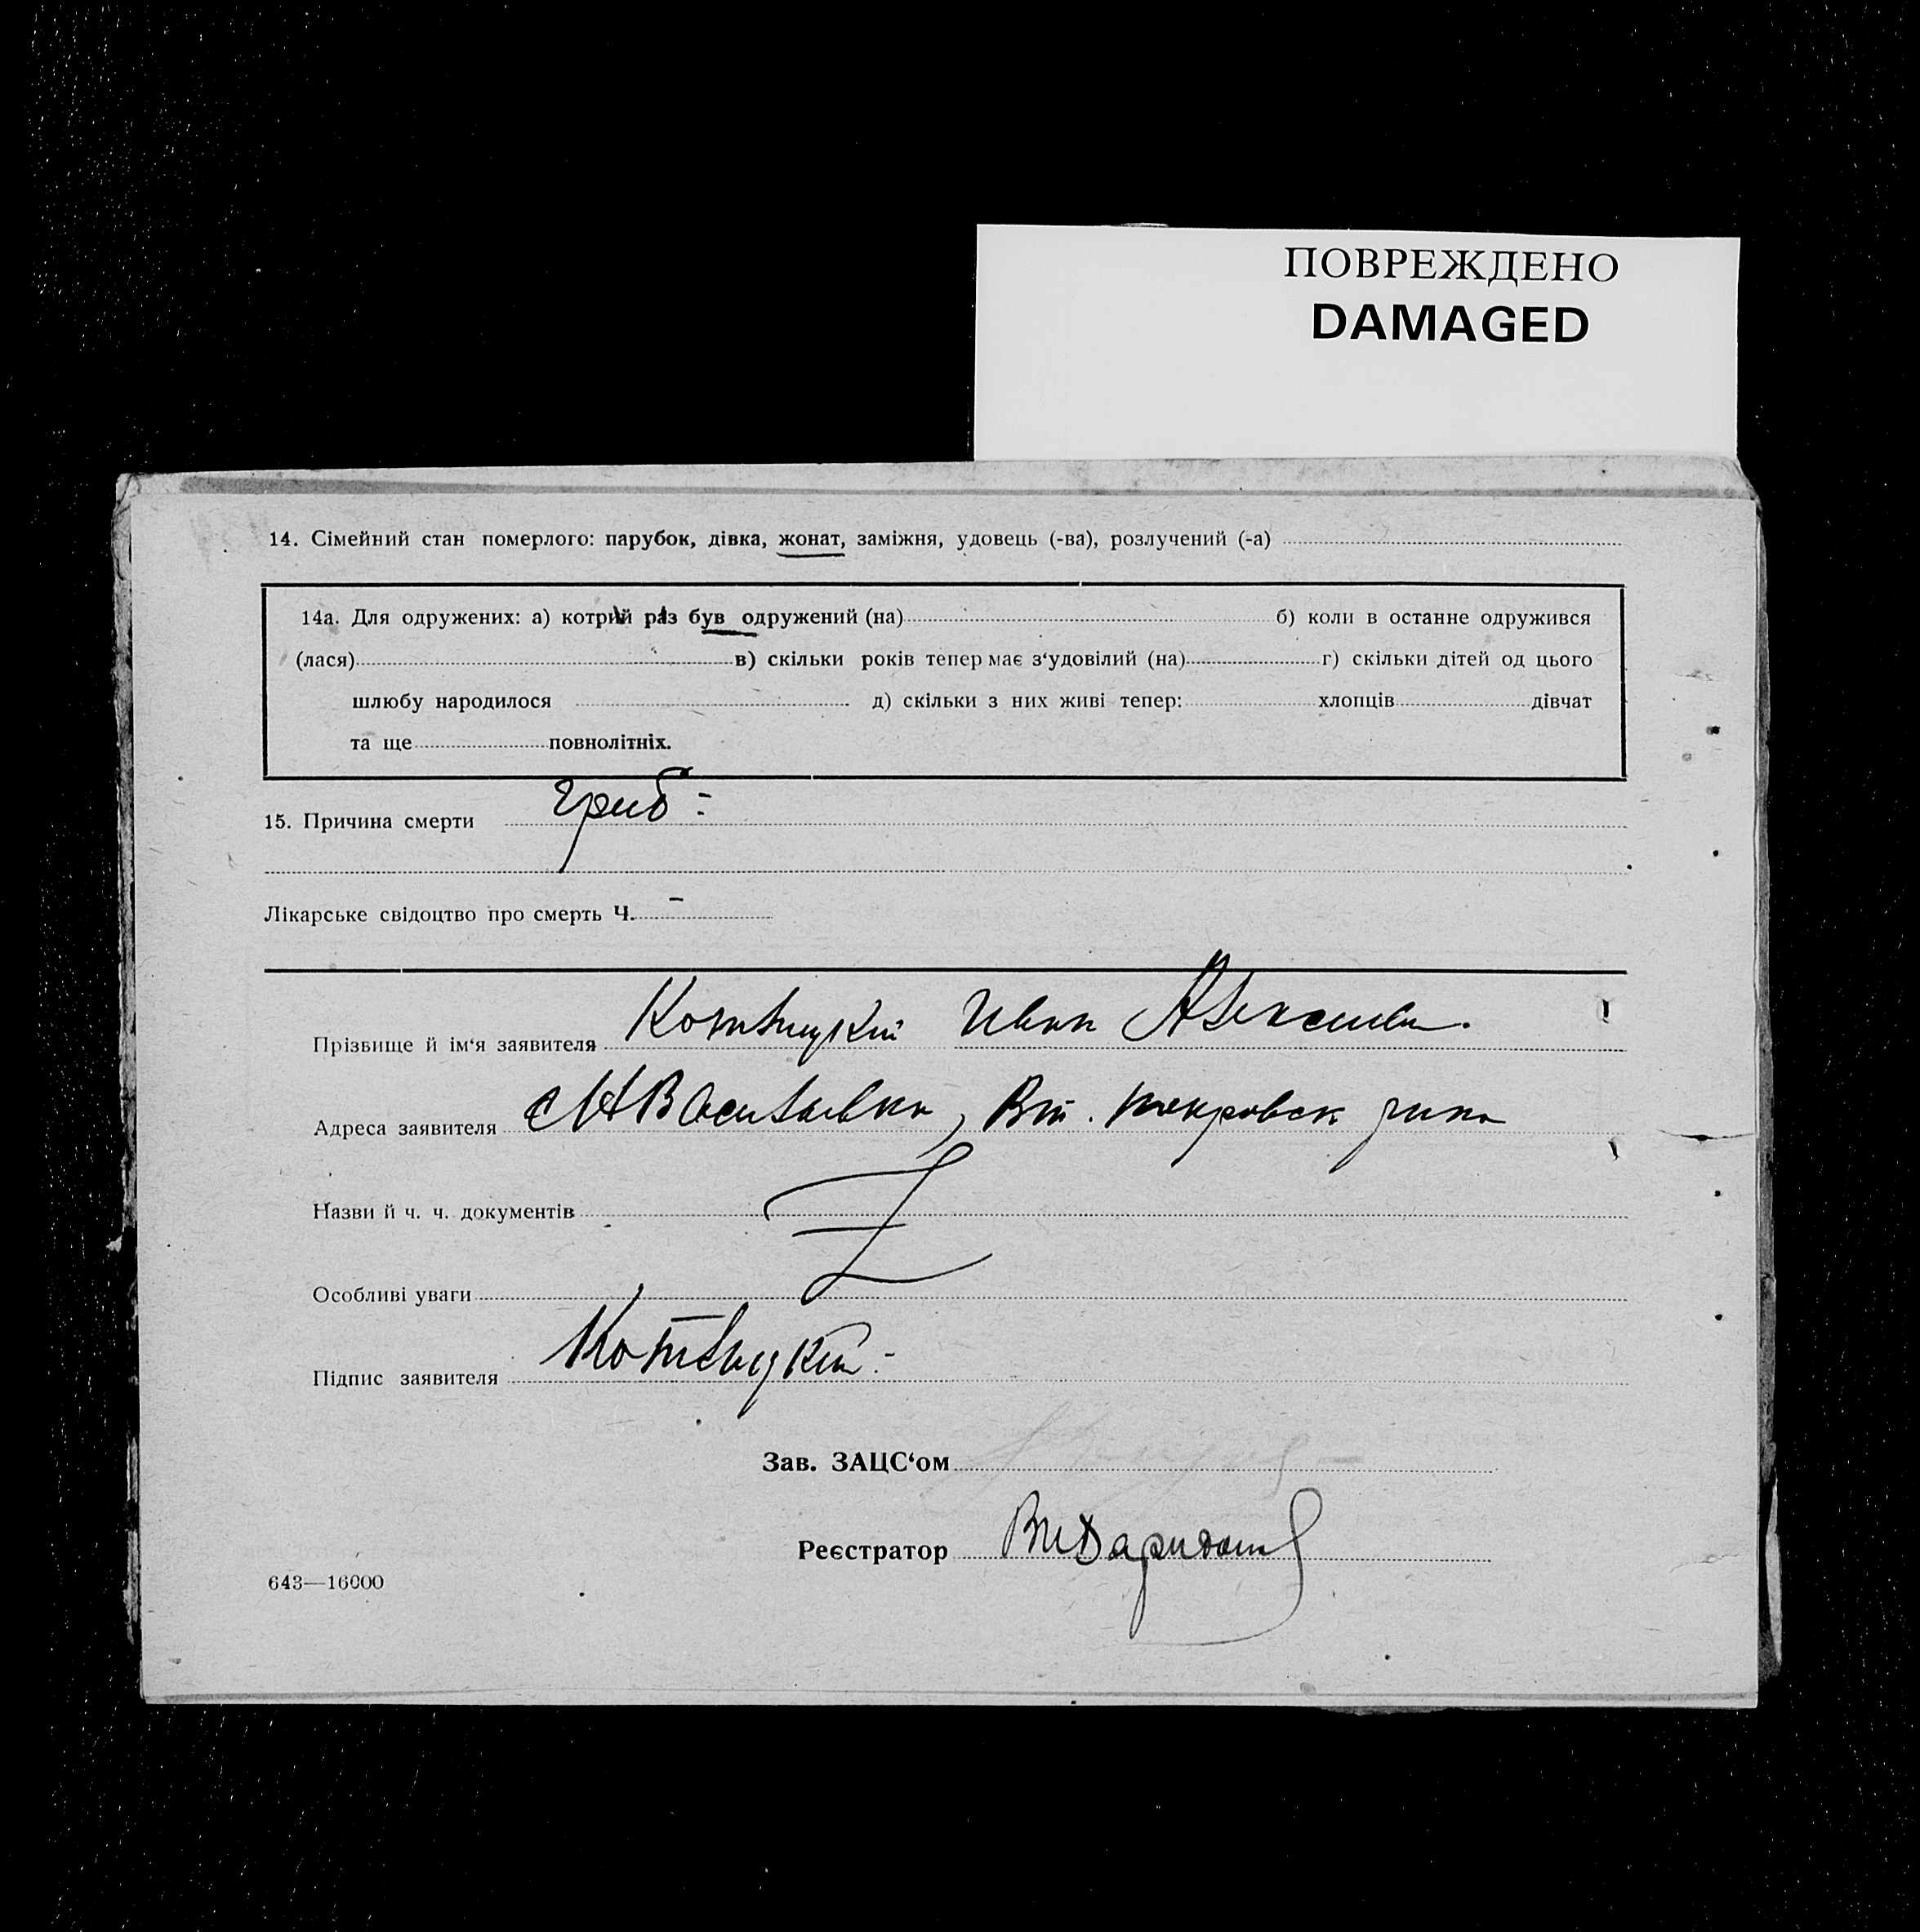 ПОВРЕЖДЕНО
DAMAGED
14. Сімейний стан померлого: парубок, дівка, жонат, заміжня, удовець (-ва), розлучений (-а)
14а. Для одружених: а) котрий раз був одружений (на) б) коли в останне одружився
(лася) в) скільки років тепер має з‘удовілий (на) г) скільки дітей од цього
шлюбу народилося д) скільки з них живі тепер: хлопців дівчат
та ще повнолітніх.
15. Причина смерти гриб
Лікарське свідоцтво про смерть Ч. –
Прізвище й ім‘я заявителя Иван
Адреса заявителя
Назви й ч. ч. документів
Особливі уваги
Підпис заявителя
Зав. ЗАЦС‘ом
Реєстратор
643—16000